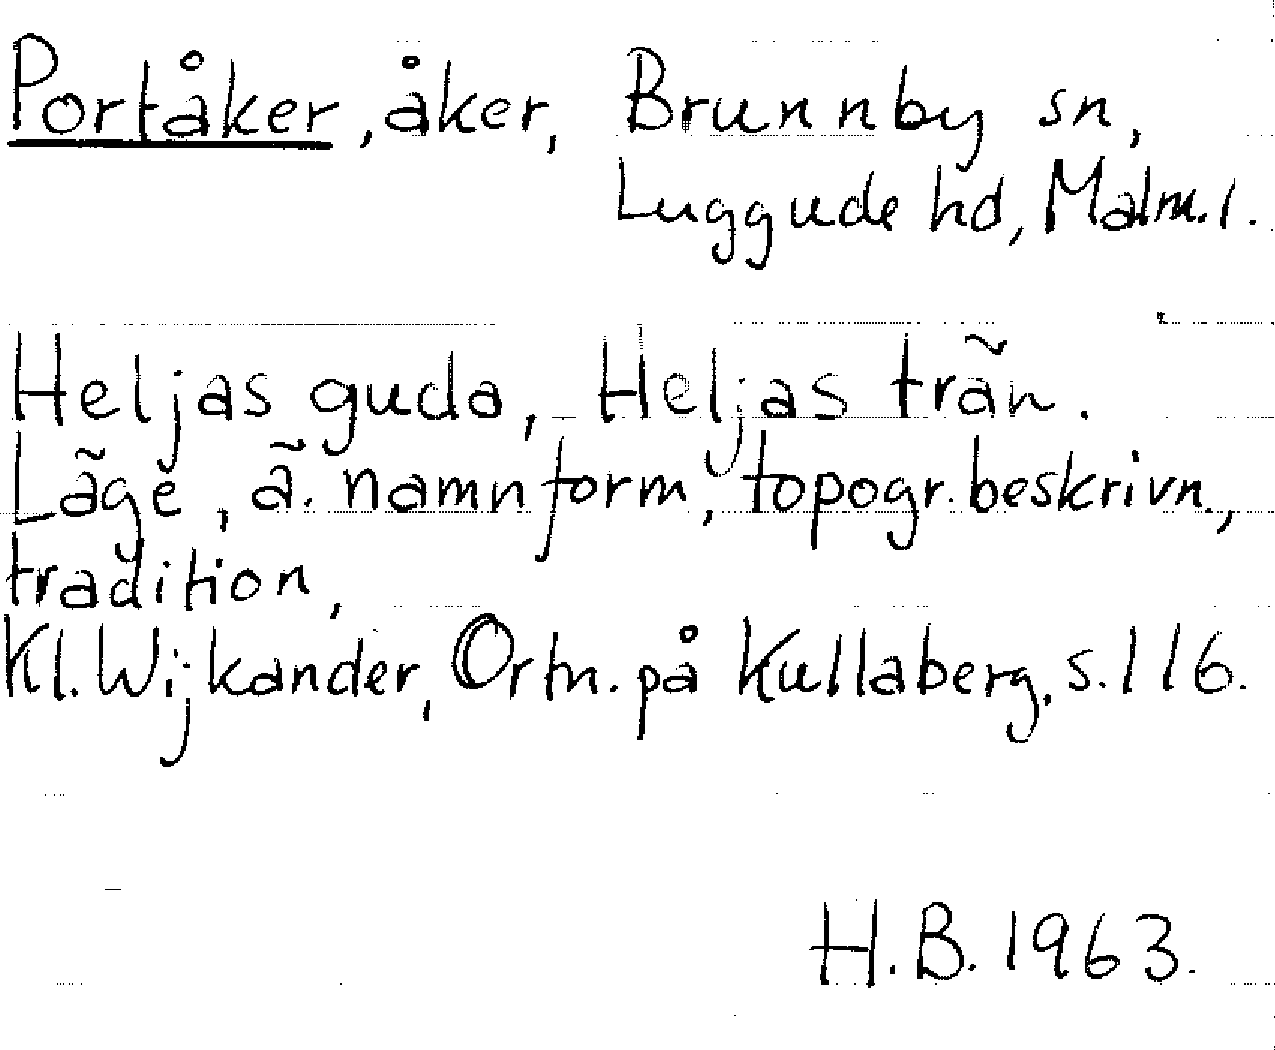 Portåker, åker, Brunnby sn,
Luggude hd, Malm.l.
Heljas guda, Heljas trän.
Läge, ä. namnform, topogr. beskrivn.,
tradition,
Kl. Wijkander, Ortn. på Kullaberg, s. 116.
H.B. 1963.